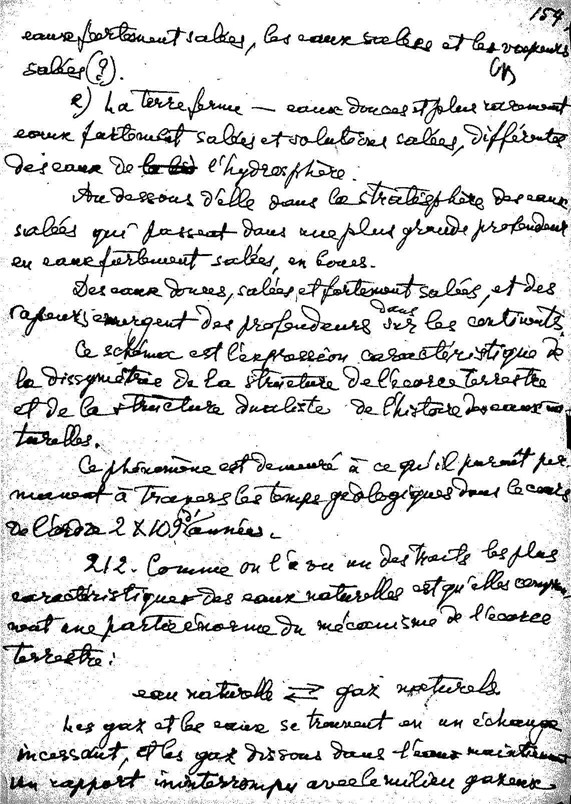 154
eaux fortement salées, les eaux salées et les vapeurs
salées (?).
2) La terre ferme — eaux douces et plus rarement
eaux fortement salées et solutions salées, différentes
des eaux de l'hydrosphère.
Au dessous d'elle dans la stratisphère des eaux
salées qui passent dans une plus grande profondeur
en eaux fortement salées, en boues.
Des eaux douces, salées, et fortement salées, et des
vapeurs émergent des profondeurs dans sur les continents.
Ce schéma est l'expression caractéristique de
la dissymétrie de la structure de l'écorce terrestre
et de la structure dualiste de l'histoire des eaux na-
turelles.
Ce phénomène est demeuré à ce qu'il paraît per-
manent à travers les temps géologiques dans le cours
de l'ordre 2 X 10⁹ d'années.
212. Comme on l'a vu un des traits les plus
caractéristiques des eaux naturelles est qu'elles compren-
nent une partie énorme du mécanisme de l'écorce
terrestre:
eau naturelle ⇄ gaz naturels
Les gaz et les eaux se trouvent en un échange
incessant, et les gaz dissous dans l'eau maintiennent
un rapport ininterrompu avec le milieu gazeux